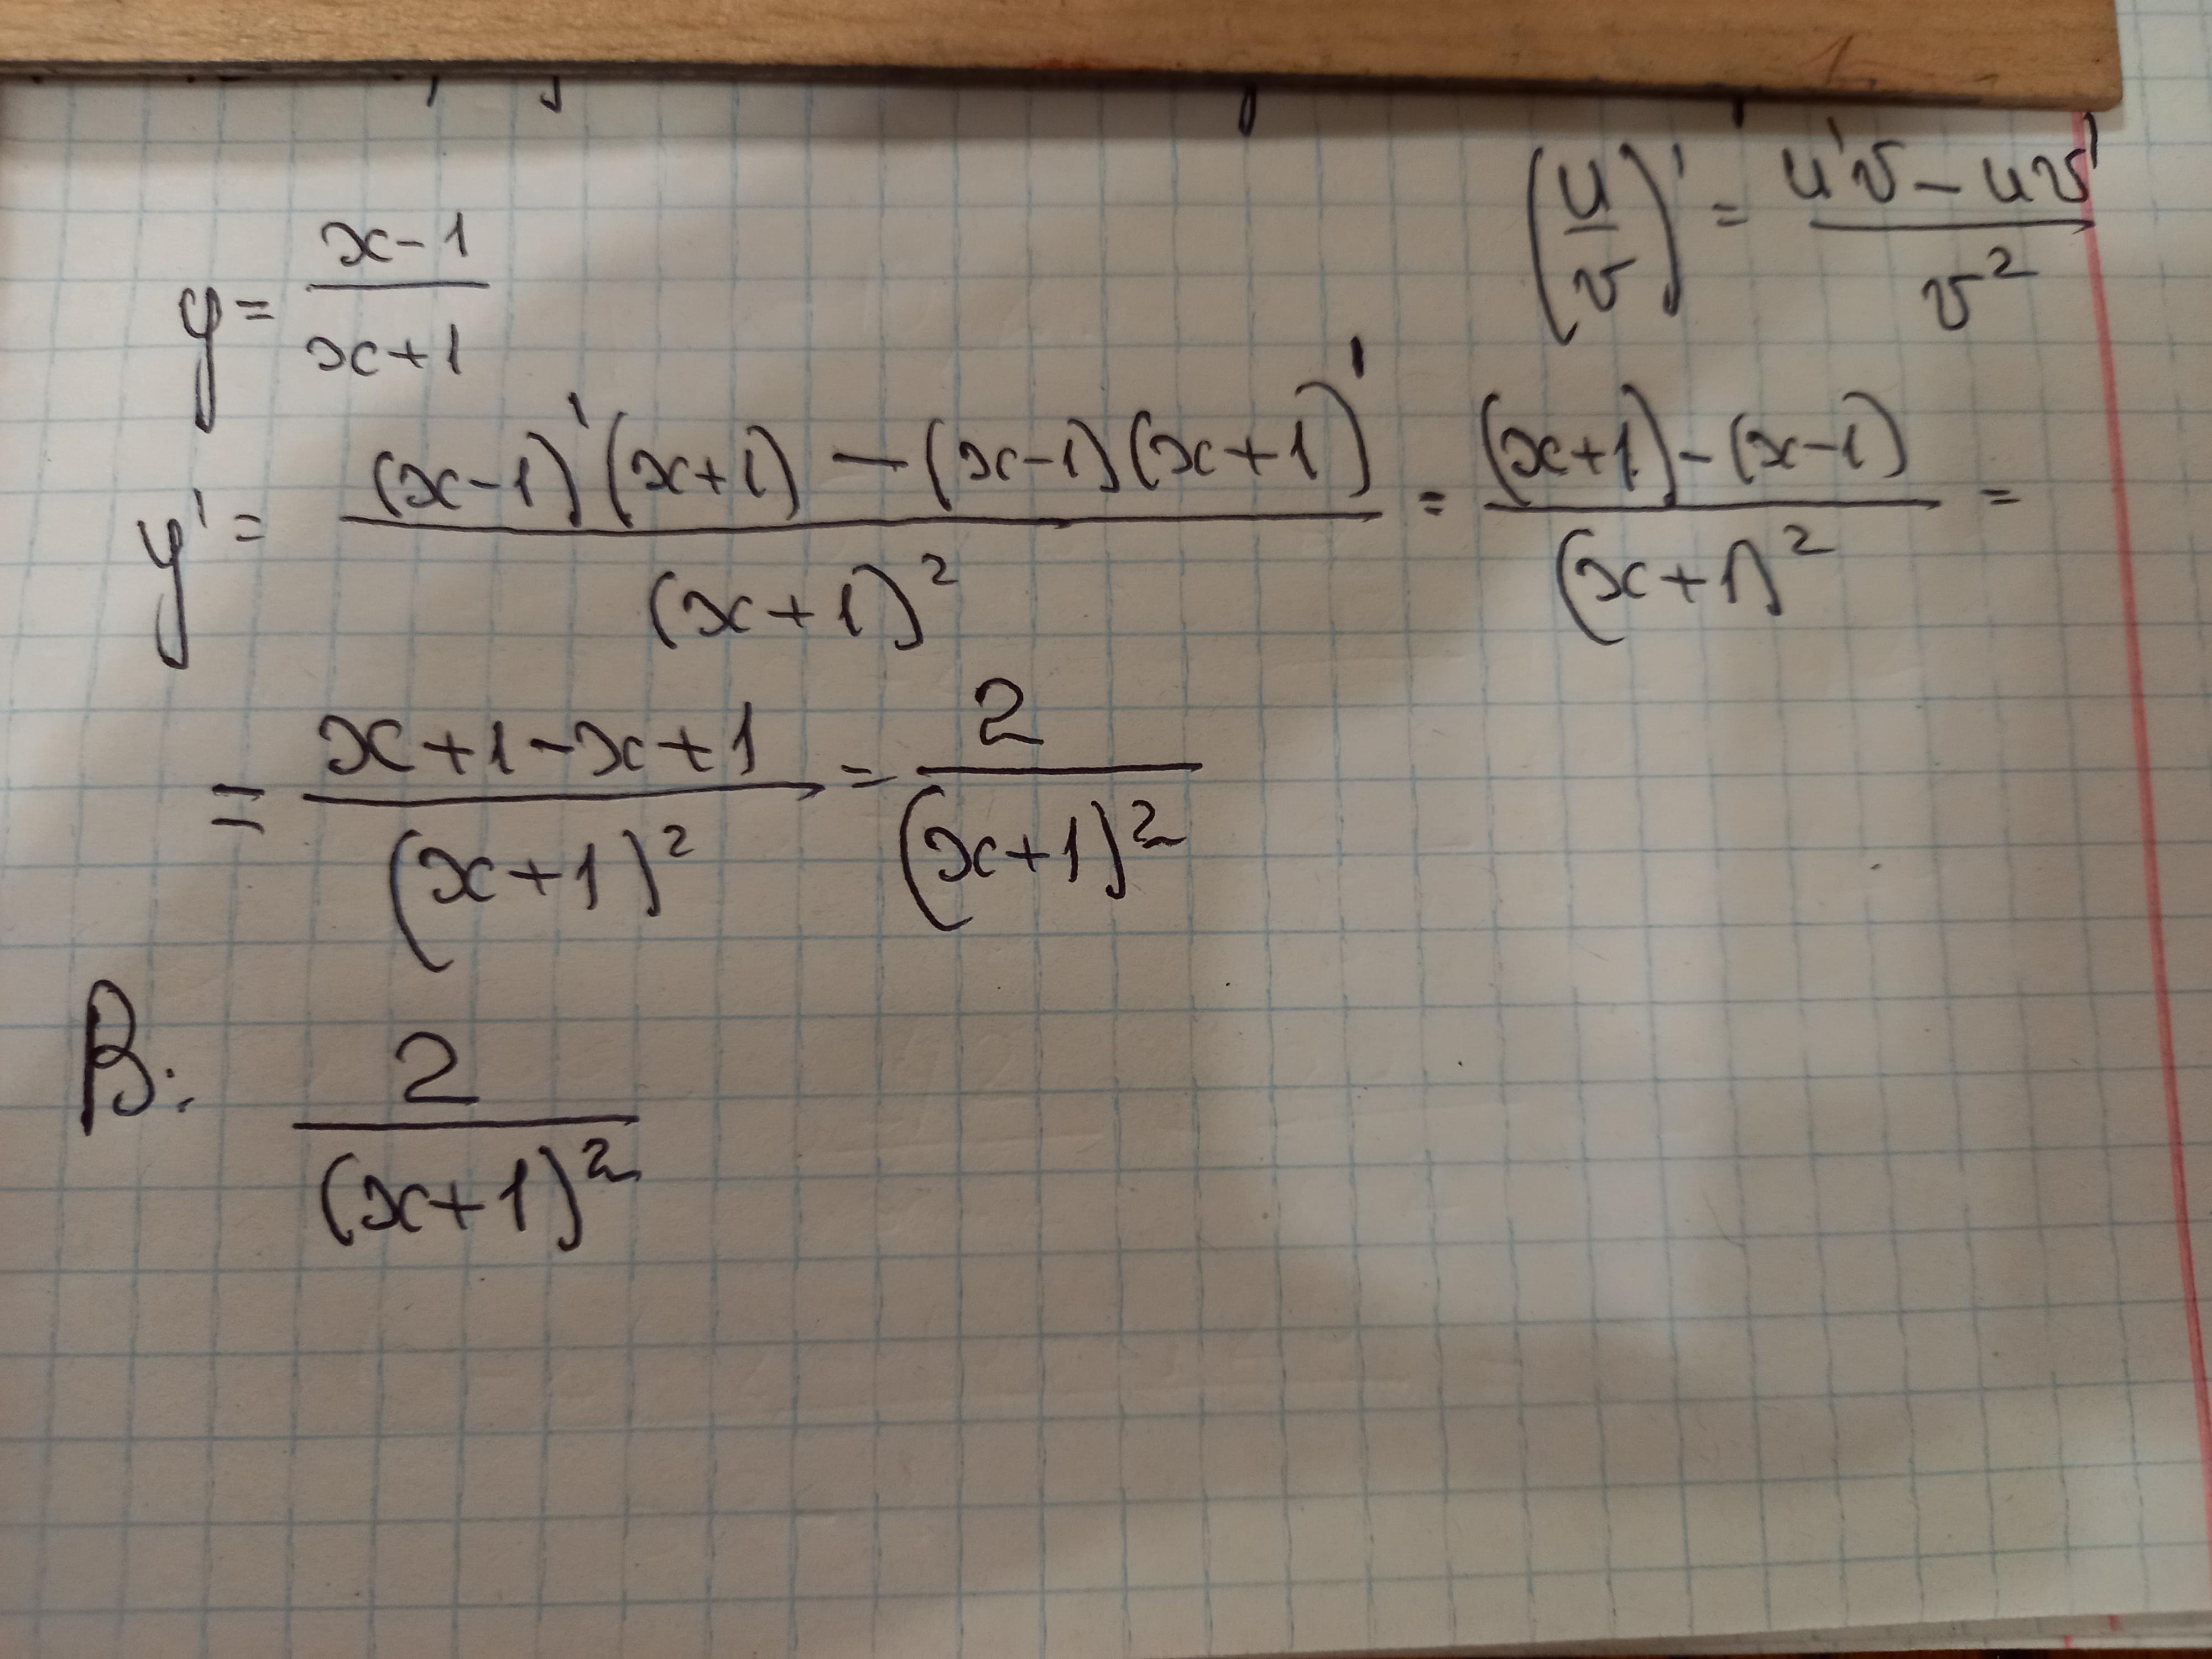 (u/v)' = (u'v - uv')/v²
y = (x-1)/(x+1)
y' = ((x-1)'(x+1) - (x-1)(x+1)')/(x+1)² = ((x+1)-(x-1))/(x+1)² =
= (x+1-x+1)/(x+1)² = 2/(x+1)²
В: 2/(x+1)²